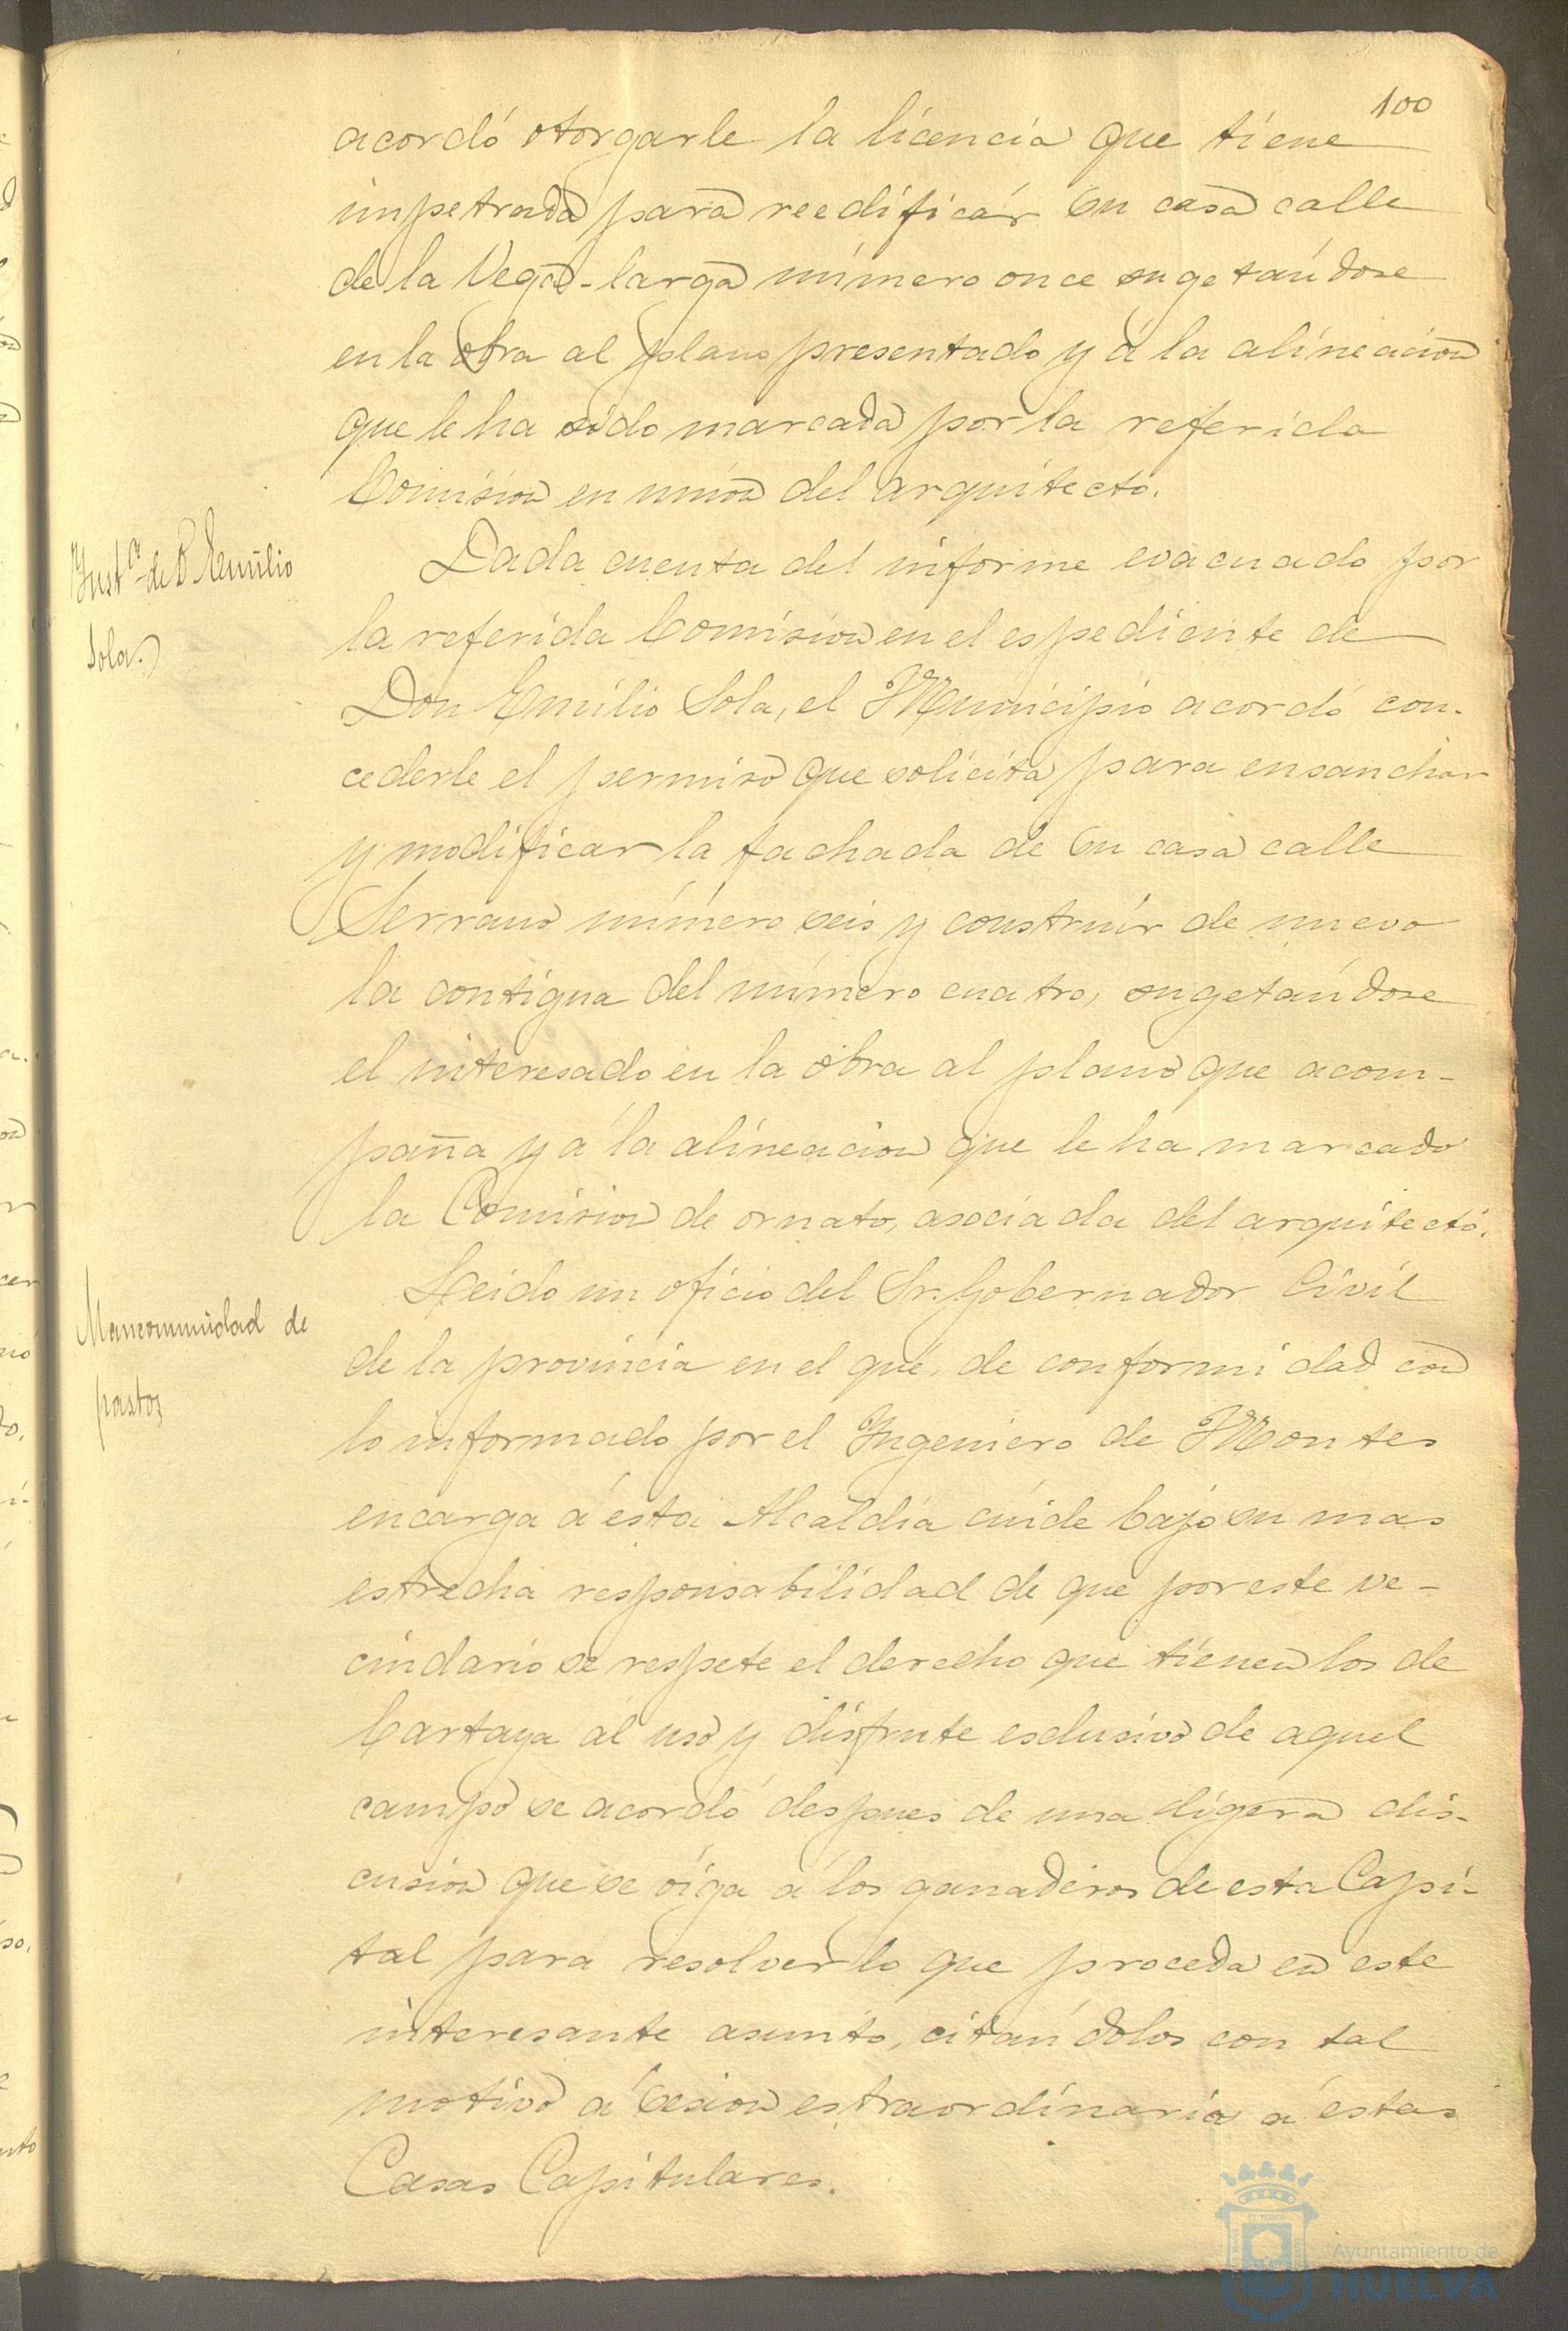 100
acordó otorgarle la licencia que tiene
impetrada para reedificár su casa calle
de la Vega-larga número once sugetándose
en la obra al plano presentado y á la alineacion
que le ha sido marcada por la referida
Comision en union del arquitecto.
Inst.ª de D. Emilio
Sola.
Dada cuenta del informe evacuado por
la referida Comision en el espediente de
Don Emilio Sola, el Municipio acordó con-
cederle el permiso que solicita para ensanchar
y modificar la fachada de su casa calle
Serrano número seis y construir de nuevo
la contigua del número cuatro, sugetándose
el interesado en la obra al plano que acom-
paña y á la alineacion que le ha marcado
la Comision de ornato, asociada del arquitecto.
Mancomunidad de
pastos
Leido un oficio del Sr. Gobernador Civil
de la provincia en el que, de conformidad con
lo informado por el Ingeniero de Montes
encarga á esta Alcaldía cuide bajo su mas
estrecha responsabilidad de que por este ve-
cindario se respete el derecho que tienen los de
Cartaya al uso y disfrute esclusivo de aquel
campo se acordó despues de una ligera dis-
cusion que se oiga á los ganaderos de esta Capi-
tal para resolver lo que proceda en este
interesante asunto, citándolos con tal
motivo á sesion estraordinaria á estas
Casas Capitulares.
Ayuntamiento de
HUELVA